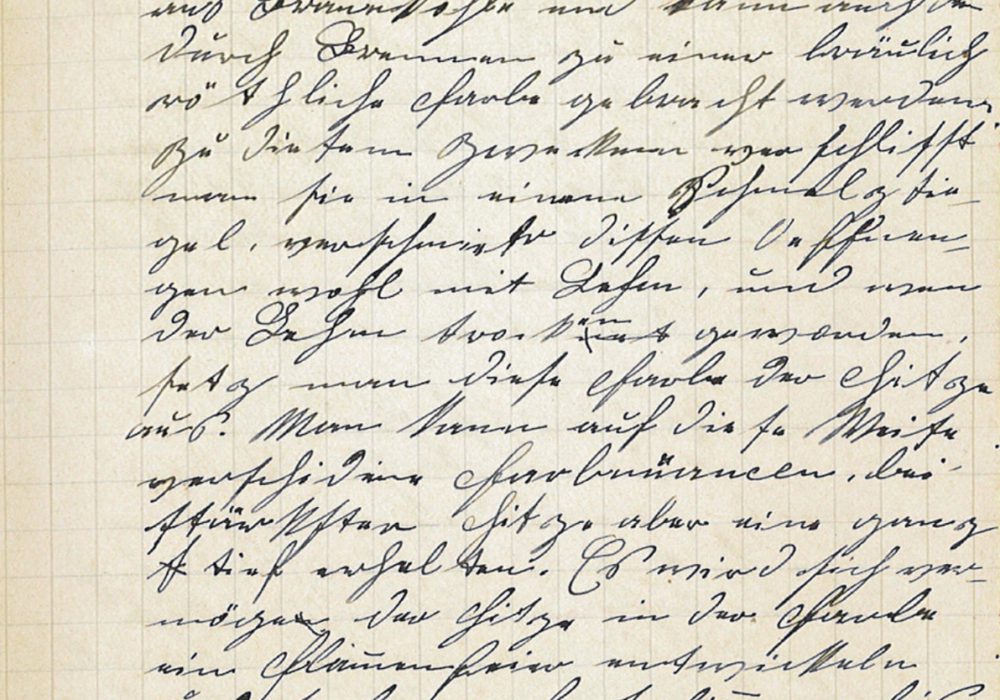 aus Braunkohle und kann auch
durch Brennen zu einer bräulich
röthliche Farbe gebracht werden,
zu diesem Zwecke ver schlißt
man sie in einem Schmelz tie-
gel, verschmiert dessen Oeffnun-
gen wohl mit Lehm, und wen
der Lehm trocken geworden,
setz man diese Farbe der Hitze
aus. Man kann auf diese Weise
verschidene Farbnüancen, bei
stärkster Hitze aber eine ganz
tief erhalten. Es wird sich ver-
mögen der Hitze in der Farbe
ein Flam̄enfeier entwickeln